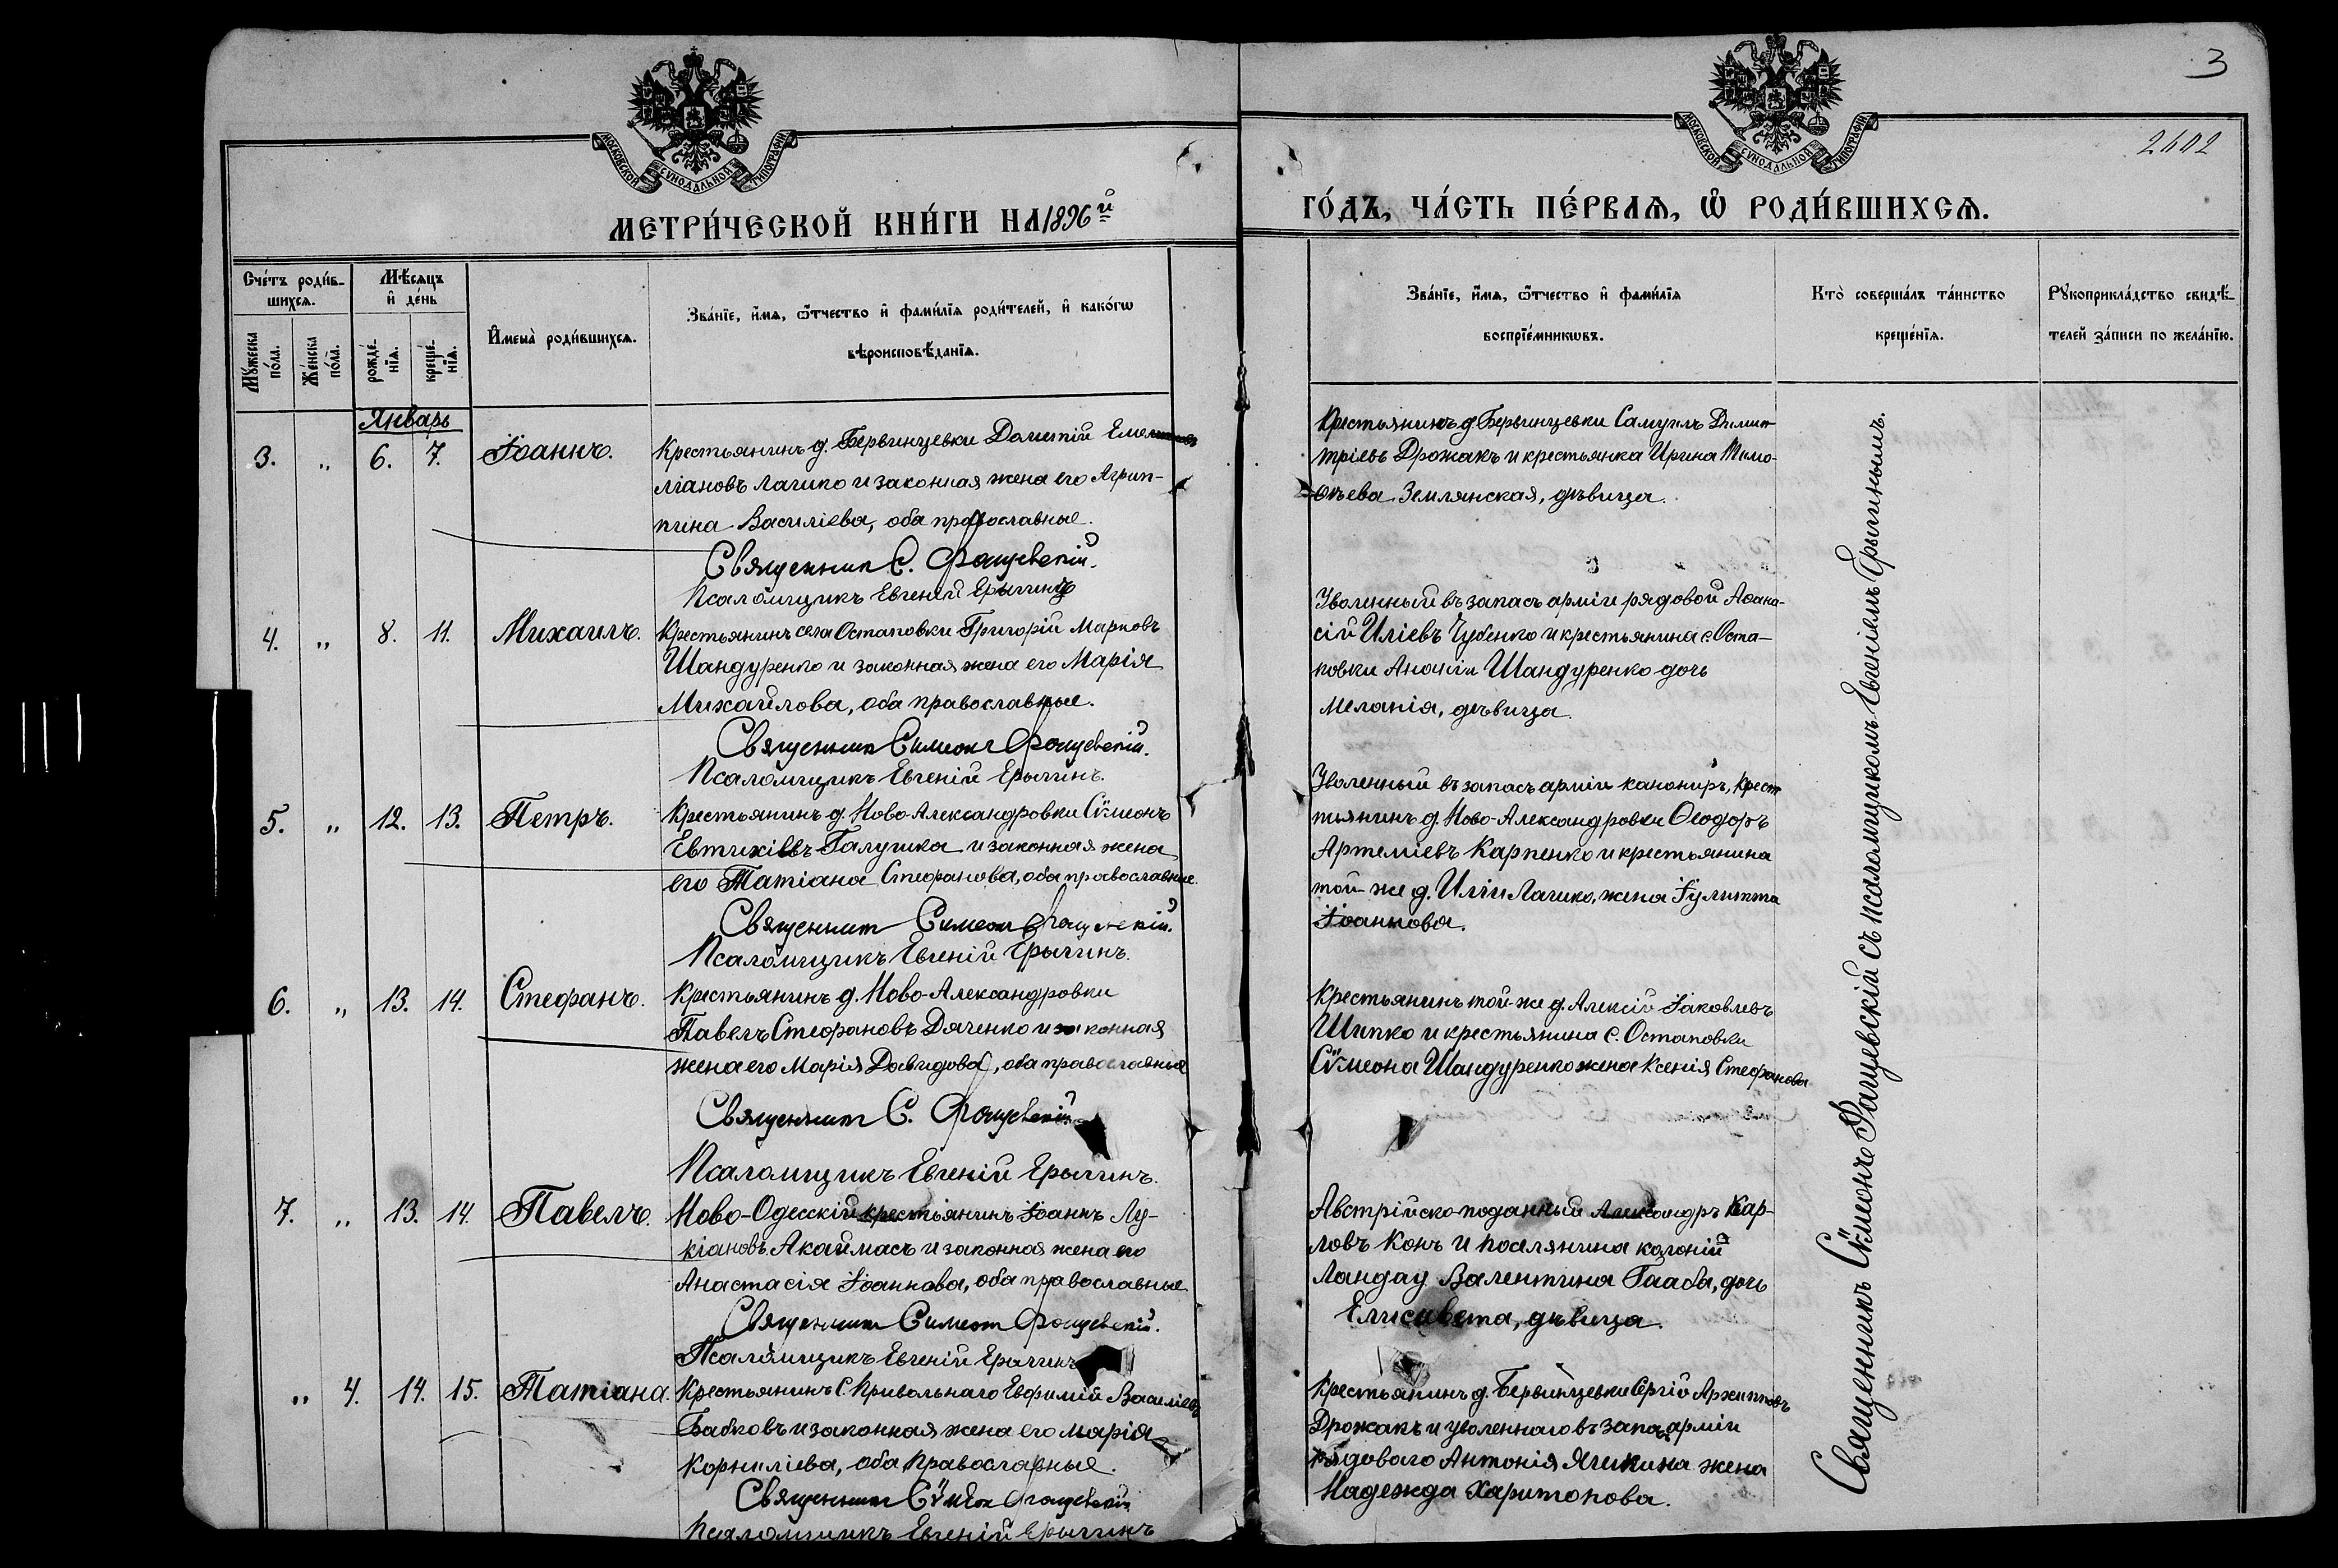 3
2602
МОСКОВСКОЙ СѴНОДАЛЬНОЙ ТИПОГРАФІИ
МОСКОВСКОЙ СѴНОДАЛЬНОЙ ТИПОГРАФІИ
МЕТРИ́ЧЕСКОЙ КНИ́ГИ НА 1896й
ГО́ДЪ, ЧА́СТЬ ПЕ́РВАѦ, Ѽ РОДИ́ВШИХСѦ.
Сче́тъ роди́в-
шихсѧ.
Мꙋ́жеска по́ла.
Же́нска по́ла.
Мѣ́сѧцъ
и҆ де́нь
рожде́-
нїѧ.
креще́-
нїѧ.
И҆мена̀ роди́вшихсѧ.
Зва́нїе, и҆́мѧ, ѻ҆́тчество и҆ фами́лїѧ роди́телей, и҆ како́гѡ
вѣроисповѣ́данїѧ.
Зва́нїе, и҆́мѧ, ѻ҆́тчество и҆ фами́лїѧ
воспрїе́мникѡвъ.
Кто̀ соверша́лъ та́инство
креще́нїѧ.
Рꙋкоприкла́дство свидѣ́-
телей за́писи по жела́нїю.
Январь
3. „ 6. 7. Іоаннъ.
Крестьянинъ д. Бервинцевки Дометій Емел
ліановъ Лагшко и законная жена его Агрип-
пина Василіева, оба православные.
Священник С. Фащевскій.
Псаломщикъ Евгеній Ерыгинъ
Крестьянинъ д. Бервинцевки Самуилъ Димит
тріевъ Дрожакъ и крестьянка Ирина Тимо-
ѳѣева Землянская, дѣвица.
4. „ 8. 11. Михаилъ.
Крестьянинъ села Остаповки Григорій Марковъ
Шандуренко и законная жена его Марія
Михайлова, оба православные.
Священник Симеон Фащевскій.
Псаломщикъ Евгеній Ерыгинъ.
Уволенный въ запасъ арміи рядовой Аѳана-
сій Иліевъ Чубенко и крестьянина с. Оста-
повки Шандуренко дочь
Меланія, дѣвица.
5. „ 12. 13. Петръ.
Крестьянинъ д. Ново-Александровки Сѵмеонъ
Евтихіевъ Галушка и законная жена
его Татіана Стефанова, оба православные.
Священник Симеон Фащевскій.
Псаломщикъ Евгеній Ерыгинъ.
Уволенный въ запасъ арміи канониръ, крест
тьянинъ д. Ново-Александровки Ѳеодоръ
Артеміевъ Карпенко и крестьянина
той-же д. Иліи Лагшко, жена Іулитта
Іоаннова.
6. „ 13. 14. Стефанъ.
Крестьянинъ д. Ново-Александровки
Павелъ Стефановъ Дяченко и законная
жена его Марія Давидова, оба православные
Священник С. Фащевскій
Псаломщикъ Евгеній Ерыгинъ.
Крестьянинъ той-же д. Алексій Іаковлевъ
Шипко и крестьянина с. Остаповки
Сѵмеона Шандуренко жена Ксенія Стефанова
7. „ 13. 14. Павелъ.
Ново-Одесскій крестьянинъ Іоаннъ Лу-
кіановъ Акаймасъ и законная жена его
Анастасія Іоаннова, оба православные
Священник Симеон Фащевскій.
Псаломщикъ Евгеній Ерыгинъ
Австрійско-поданный Александръ Кар-
ловъ Конъ и поселянина колоній
Ландау Валентина Гааба, дочь
Елисавета, дѣвица.
„ 4. 14. 15. Татіана.
Крестьянинъ с. Привольнаго Евфимій Василіевъ
Бабковъ и законная жена его Марія
Корниліева, оба православные.
Священник Сѵмеон Фащевскій
Псаломщикъ Евгеній Ерыгинъ
Крестьянинъ д. Бервинцевки Сергій Архиповъ
Дрожакъ и уволеннаго въ запасъ арміи
рядоваго Антонія жена
Надежда Харитонова.
Священникъ Сѵмеонъ Фащевскій съ псаломщикомъ Евгеніемъ Ерыгинымъ.